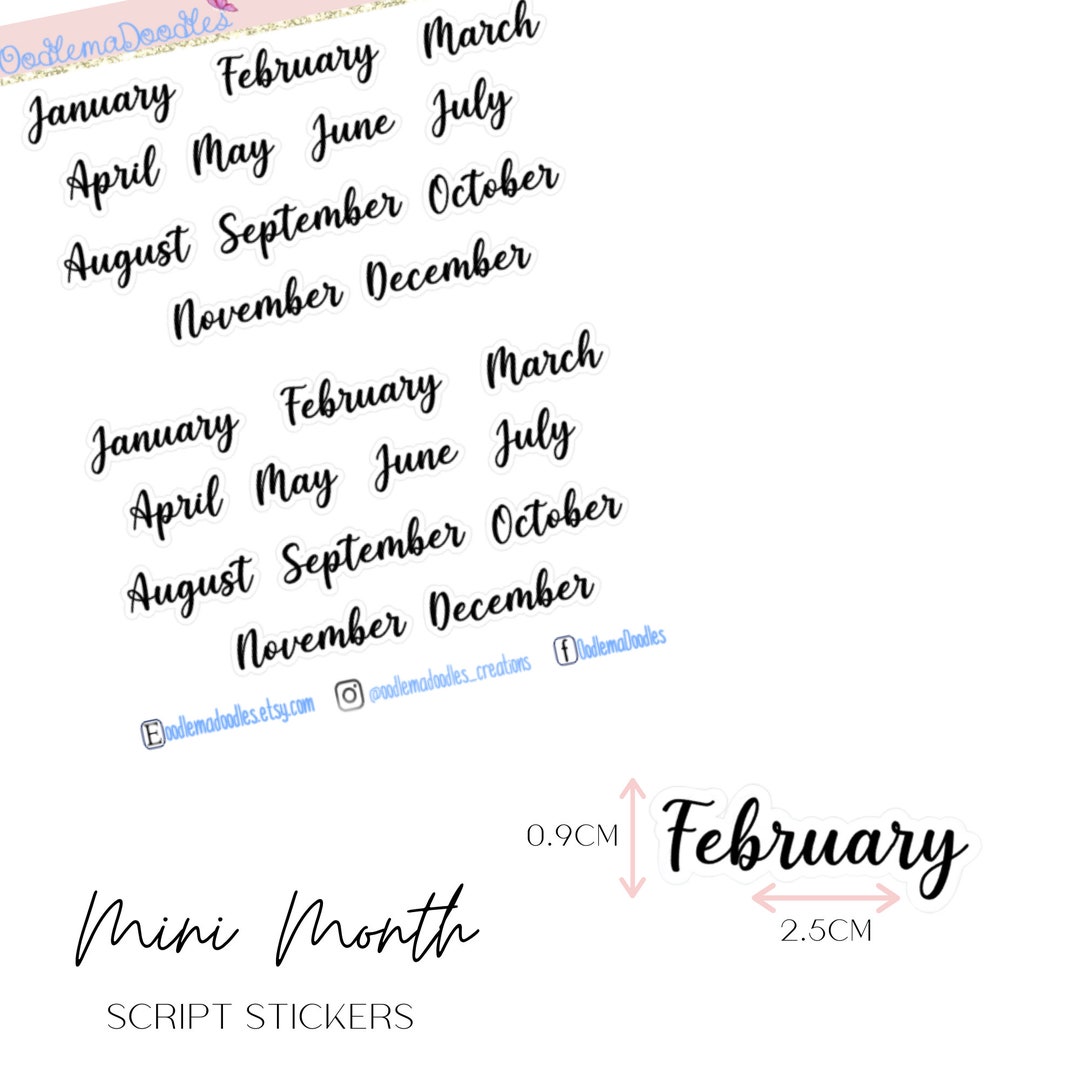 OodlemaDoodles
January February March
April May June July
August September October
November December
January February March
April May June July
August September October
November December
E oodlemadoodles.etsy.com @oodlemadoodles_creations f OodlemaDoodles
0.9CM
February
2.5CM
Mini Month
SCRIPT STICKERS